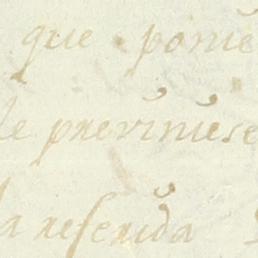 que ponie
le previniese
la referida